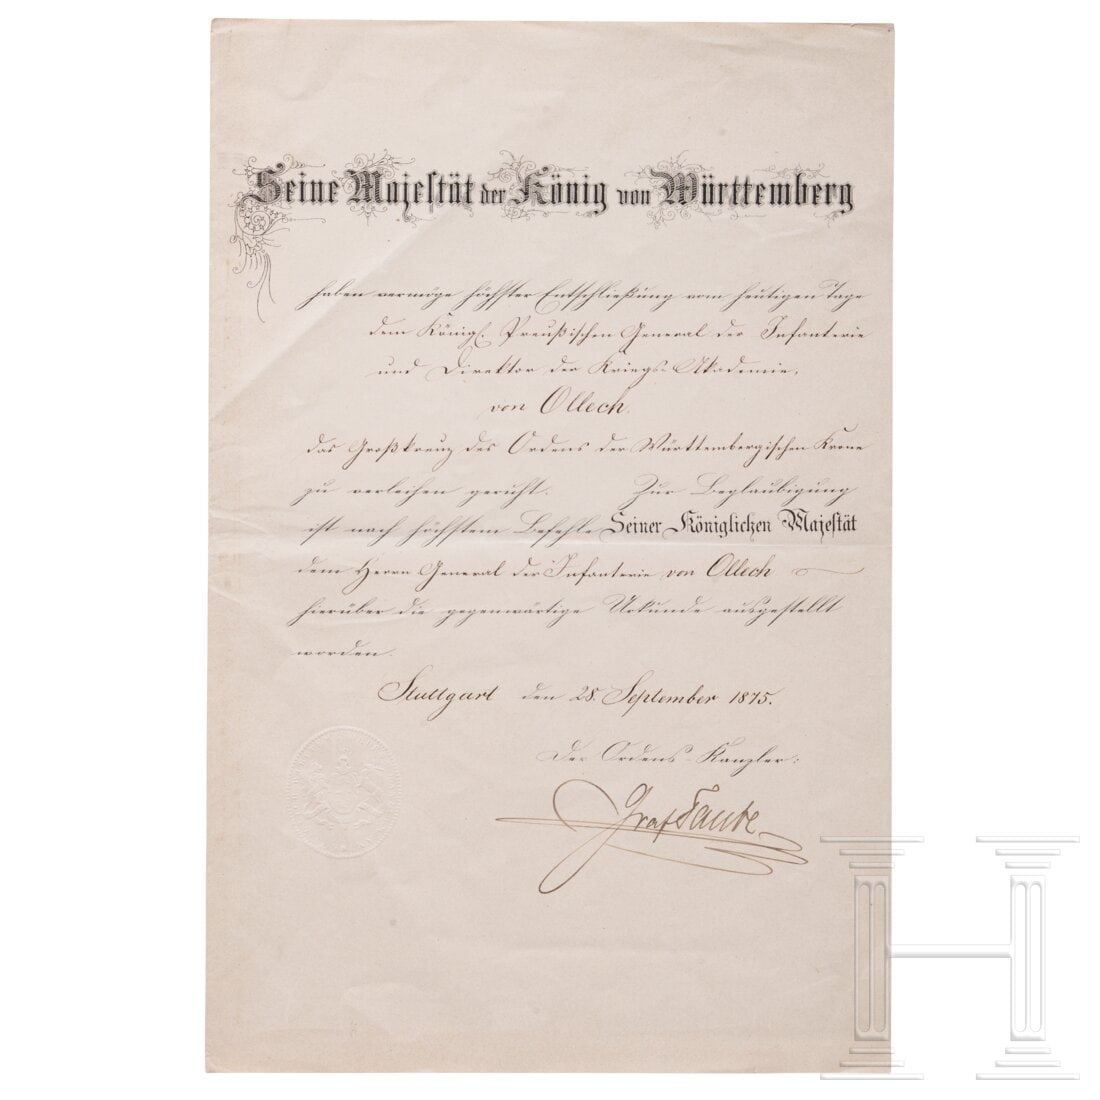 Seine Majestät der König von Württemberg
haben vermöge höchster Entschließung vom heutigen Tage
dem Königl. Preußischen General der Infanterie
und Direktor der Kriegs-Akademie,
von Ollech.
das Großkreuz des Ordens der Württembergischen Krone
zu verleihen geruht. Zur Beglaubigung
ist nach höchstem Befehle Seiner Königlichen Majestät
dem Herrn General der Infanterie von Ollech
hierüber die gegenwärtige Urkunde ausgestellt
worden.
Stuttgart den 28. September 1875.
Der Ordens-Kanzler:
Graf Taube
H